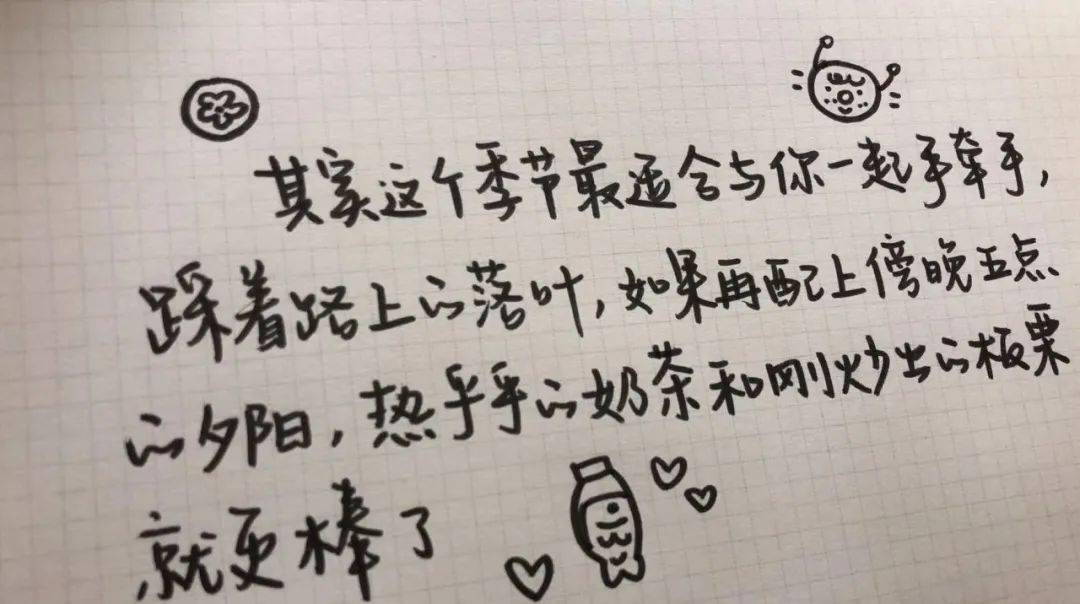 其实这个季节最适合与你一起手牵手,
踩着路上的落叶,如果再配上傍晚五点
的夕阳,热乎乎的奶茶和刚炒出的板栗
就更棒了